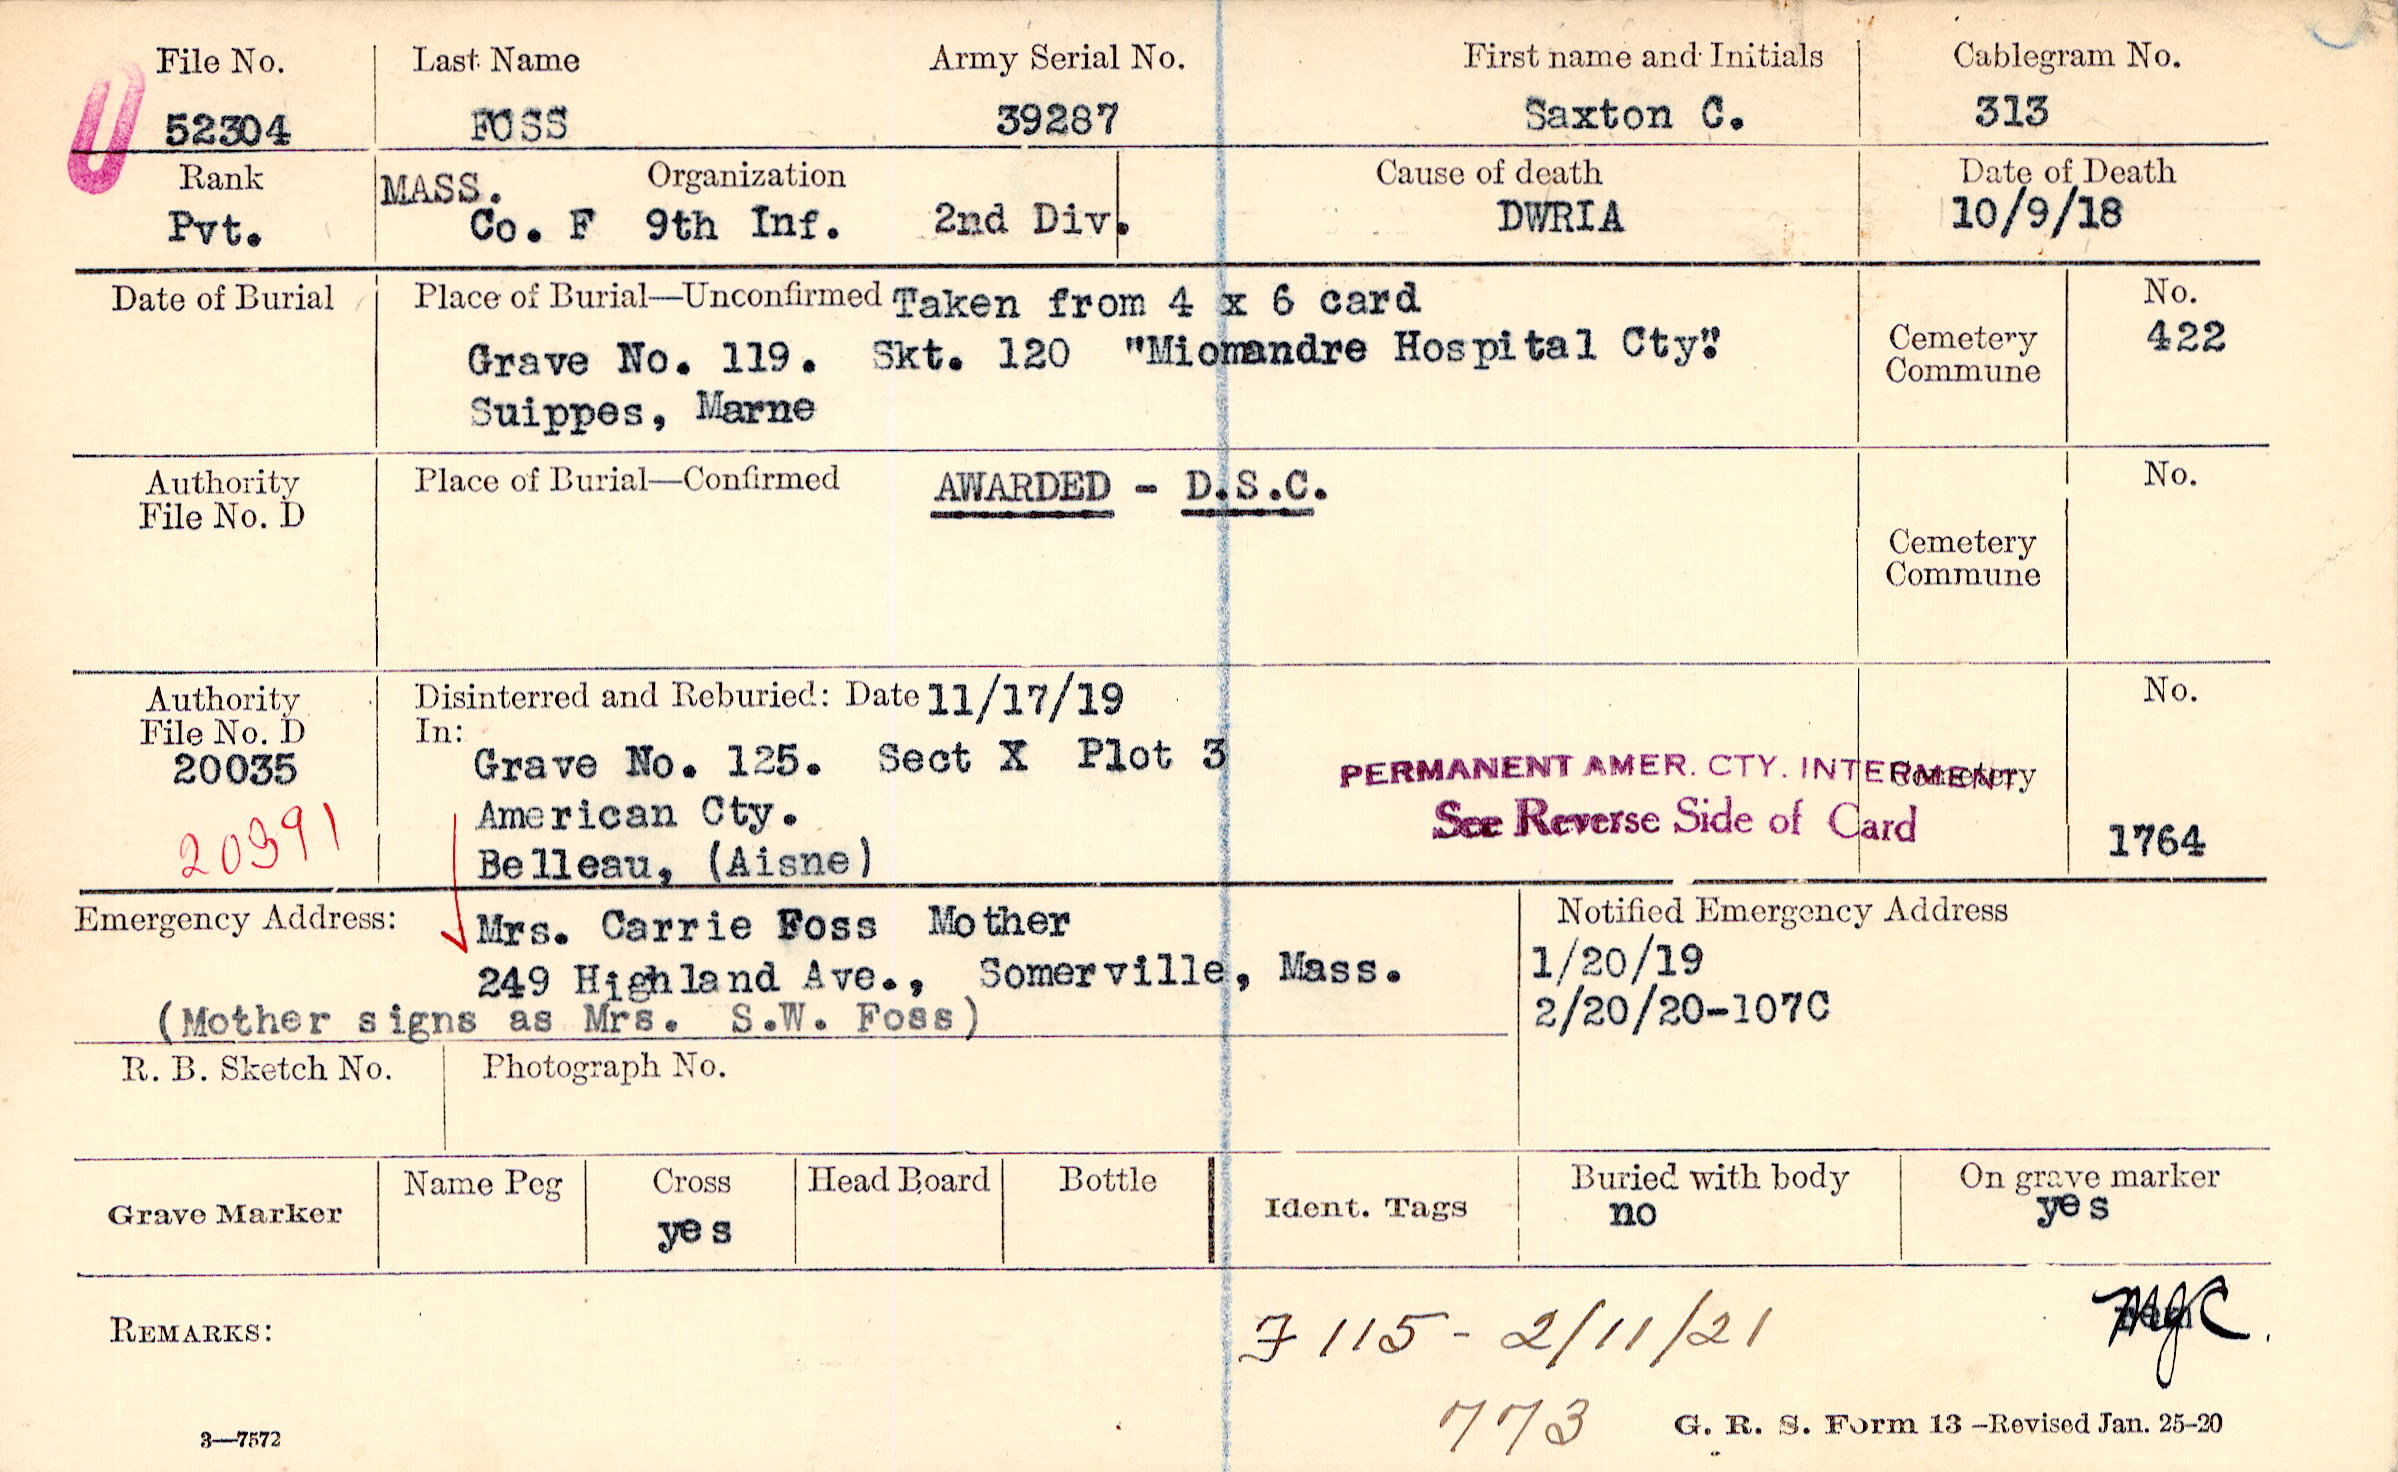 File No. Last Name Army Serial No. First name and Initials Cablegram No.
52304 FOSS 39287 Saxton C. 313
Rank MASS. Organization Cause of death Date of Death
Pvt. Co. F 9th Inf. 2nd Div. DWRIA 10/9/18
Date of Burial Place of Burial—Unconfirmed Taken from 4 x 6 card No.
Grave No. 119. Skt. 120 "Miomandre Hospital Cty". Cemetery 422
Commune
Suippes, Marne
Authority Place of Burial—Confirmed AWARDED - D.S.C. No.
File No. D
Cemetery
Commune
Authority Disinterred and Reburied: Date 11/17/19 No.
File No. D In:
20035 Grave No. 125. Sect X Plot 3 PERMANENT AMER. CTY. INTERMENT Cemetery
20391 American Cty. See Reverse Side of Card 1764
Belleau, (Aisne)
Emergency Address: Mrs. Carrie Foss Mother Notified Emergency Address
249 Highland Ave., Somerville, Mass. 1/20/19
(Mother signs as Mrs. S.W. Foss) 2/20/20-107C
R. B. Sketch No. Photograph No.
Grave Marker Name Peg Cross Head Board Bottle Ident. Tags Buried with body On grave marker
yes no yes
REMARKS: F 115 - 2/11/21 MJC.
773
3—7572 G. R. S. Form 13 —Revised Jan. 25-20